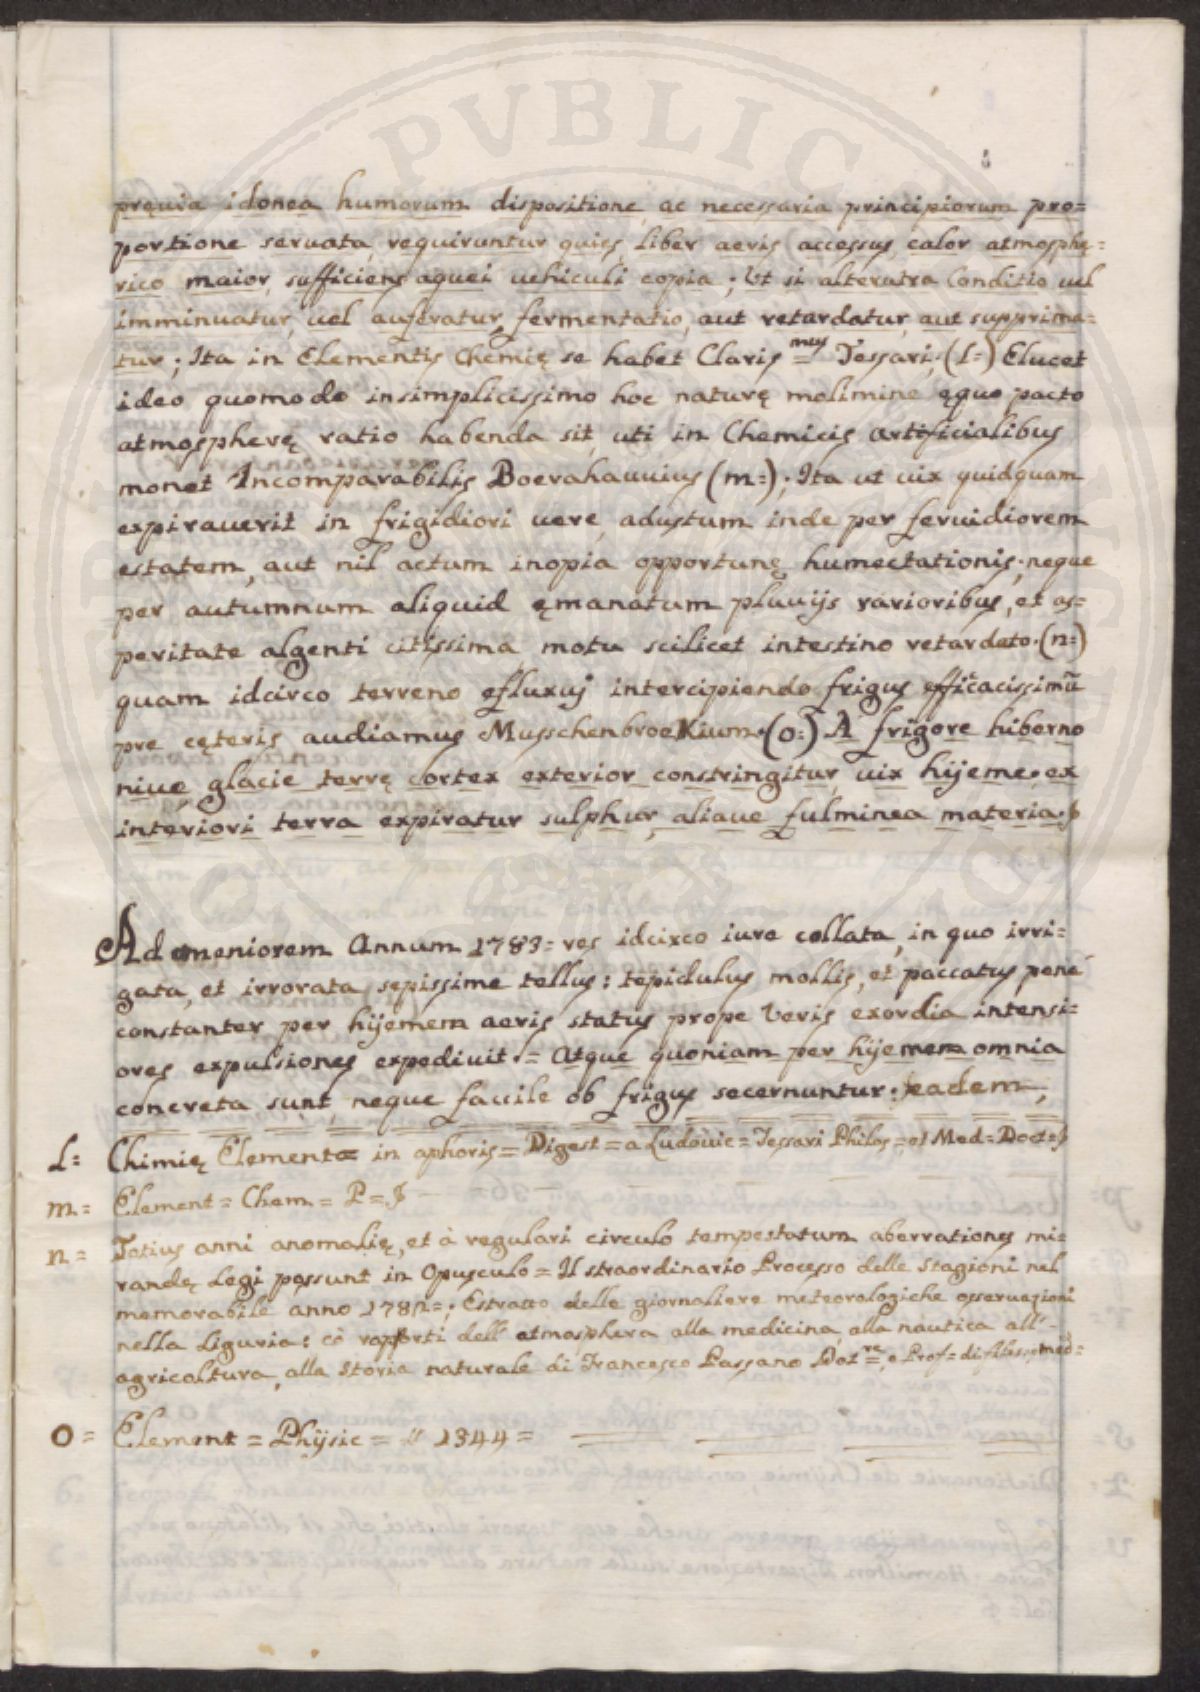 pręuia idonea humorum dispositione, ac necessaria principiorum pro=
portione seruata, requiruntur quies, liber aeris accessus, calor atmosphę=
rico maior, sufficiens aquei uehiculi copia; Ut si alterutra Conditio uel
imminuatur, uel auferatur, fermentatio, aut retardatur, aut supprima=
tur; Ita in Elementis Chemię se habet Claris mus Tessari. (L=) Elucet
ideo quomodo insimplicissimo hoc naturę molimine ęquo pacto
atmospherę ratio habenda sit, uti in Chemicis artificialibus
monet Incomparabilis Boerahauuius (m=); Ita ut uix quidquam
expirauerit in frigidiori uere, adustum inde per feruidiorem
estatem, aut nil actum inopia opportunę humectationis; neque
per autumnum aliquid ęmanatum pluuijs rarioribus, et as=
peritate algenti citissima, motu scilicet intestino retardato. (n=)
quam idcirco terreno efluxuj intercipiendo frigus efficacissimū
pre cęteris audiamus Musschenbroekium. (o=) A frigore hiberno
niue, glacie terrę cortex exterior constringitur, uix hijeme ex
interiori terra expiratur sulphur, aliaue fulminea materia.
Ad ameniorem Annum 1783= res idcirco iure collata, in quo irri=
gata, et irrorata sepissime tellus: tepidulus mollis, et paccatus pene
constanter per hijemem aeris status prope Veris exordia intensi=
ores expulsiones expediuit.= Atque quoniam per hijemem omnia
concreta sunt, neque facile ob frigus secernuntur; eadem,
L= Chimię Elementa in aphoris= Digest= a Ludouic= Tessari Philos= et Med= Doct=
m= Element= Chem= P=
n= Totius anni anomalię, et à regulari circulo tempestatum aberrationes mi=
randę legi possunt in Opusculo= Il straordinario Processo delle Stagioni nel
memorabile anno 1782=; Estratto delle giornaliere meteorologiche osseruazioni
nella Liguria: cò rapporti dell' atmosphera alla medicina alla nautica all'-
agricoltura, alla storia naturale di Francesco Passano Dot re, e Prof= di filos= med=
o= Element= Phÿsic= § 1344=